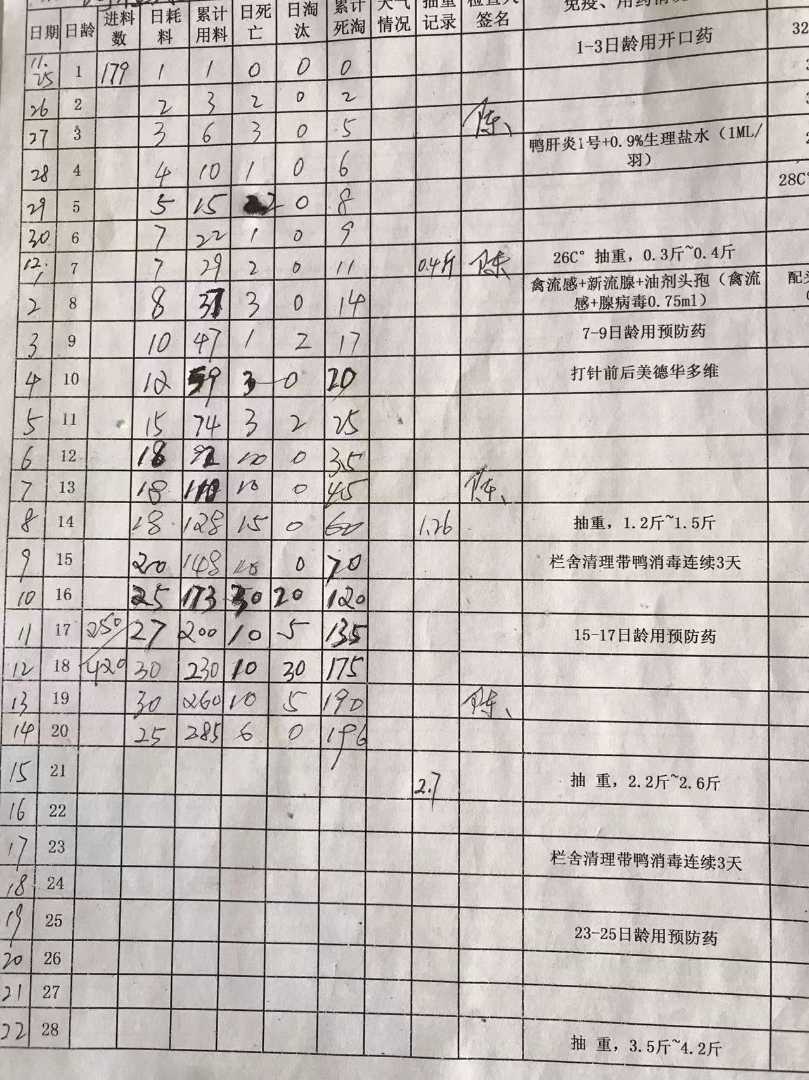 日期 日龄 进料数 日耗料 累计用料 日死亡 日淘汰 累计死淘 天气情况 抽重记录 签名
1-3日龄用开口药 32
11.25 1 179 1 1 0 0 0
26 2 2 3 2 0 2
27 3 3 6 3 0 5 陈
鸭肝炎1号+0.9%生理盐水（1ML/羽）
28 4 4 10 1 0 6
29 5 5 15 2 0 8 28C°
30 6 7 22 1 0 9
12.1 7 7 29 2 0 11 0.4斤 陈 26C° 抽重，0.3斤~0.4斤
2 8 8 37 3 0 14 禽流感+新流腺+油剂头孢（禽流感+腺病毒0.75ml）
3 9 10 47 1 2 17 7-9日龄用预防药
4 10 12 59 3 0 20 打针前后美德华多维
5 11 15 74 3 2 25
6 12 18 92 10 0 35
7 13 18 110 10 0 45 陈
8 14 18 128 15 0 60 1.26 抽重，1.2斤~1.5斤
9 15 20 148 10 0 70 栏舍清理带鸭消毒连续3天
10 16 25 173 30 20 120
11 17 250 27 200 10 5 135 15-17日龄用预防药
12 18 420 30 230 10 30 175
13 19 30 260 10 5 190 陈
14 20 25 285 6 0 196
15 21 2.7 抽 重，2.2斤~2.6斤
16 22
17 23 栏舍清理带鸭消毒连续3天
18 24
19 25 23-25日龄用预防药
20 26
21 27
22 28 抽 重，3.5斤~4.2斤